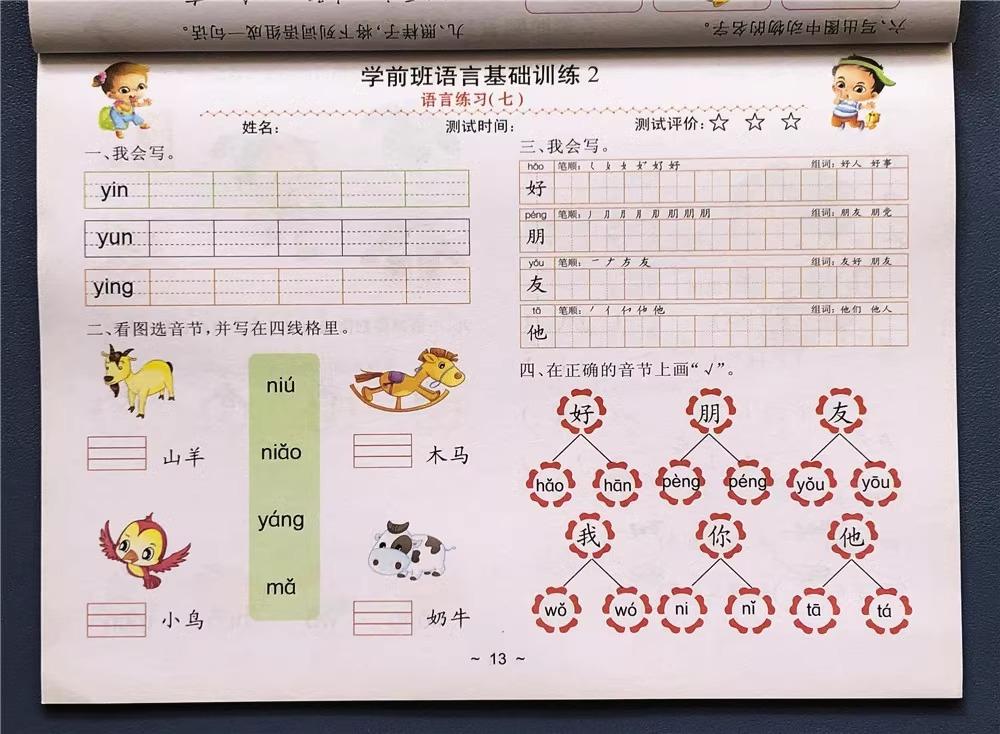 九、照样子，将下列词语组成一句话。
六、写出图中动物的名字。
学前班语言基础训练 2
语言练习(七)
姓名：
测试时间：
测试评价：☆ ☆ ☆
一、我会写。
yin
yun
ying
二、看图选音节，并写在四线格里。
niú
niǎo
yáng
mǎ
山羊
木马
小鸟
奶牛
三、我会写。
hǎo 笔顺： 组词：好人 好事
好
péng 笔顺： 组词：朋友 朋党
朋
yǒu 笔顺： 组词：友好 朋友
友
tā 笔顺： 组词：他们 他人
他
四、在正确的音节上画“√”。
好 朋 友
hǎo hān pèng péng yǒu yōu
我 你 他
wǒ wó ni nǐ tā tá
~ 13 ~